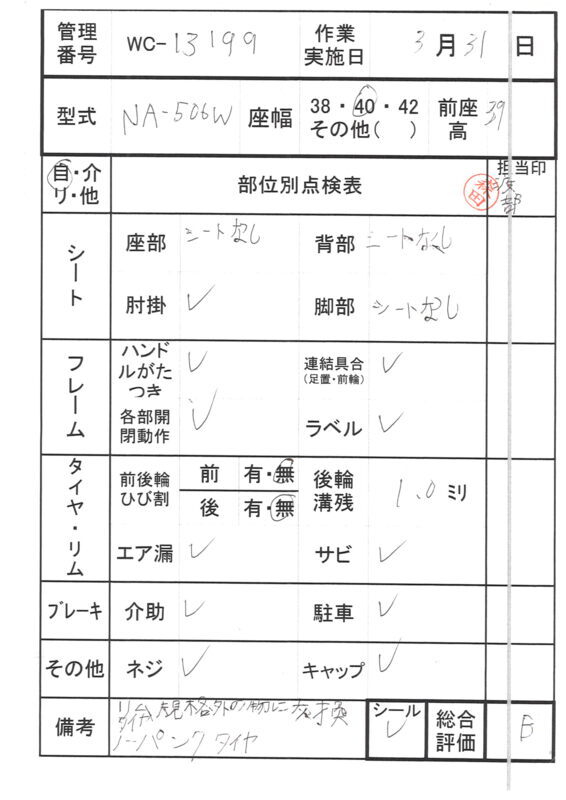 管理番号 WC-13199 作業実施日 3月31日
型式 NA-506W 座幅 38・40・42 その他( ) 前座高 39
自・介 リ・他 部位別点検表 担当印
シート 座部 シートなし 背部 シートなし
肘掛 ✓ 脚部 シートなし
フレーム ハンドルがたつき ✓ 連結具合(足置・前輪) ✓
各部開閉動作 ✓ ラベル ✓
タイヤ・リム 前後輪ひび割 前 有・無 後輪溝残 1.0 ミリ
後 有・無
エア漏 ✓ サビ ✓
ブレーキ 介助 ✓ 駐車 ✓
その他 ネジ ✓ キャップ ✓
備考 リム タイヤ 規格外の物に交換 シール ✓ 総合評価 B
ノーパンクタイヤ